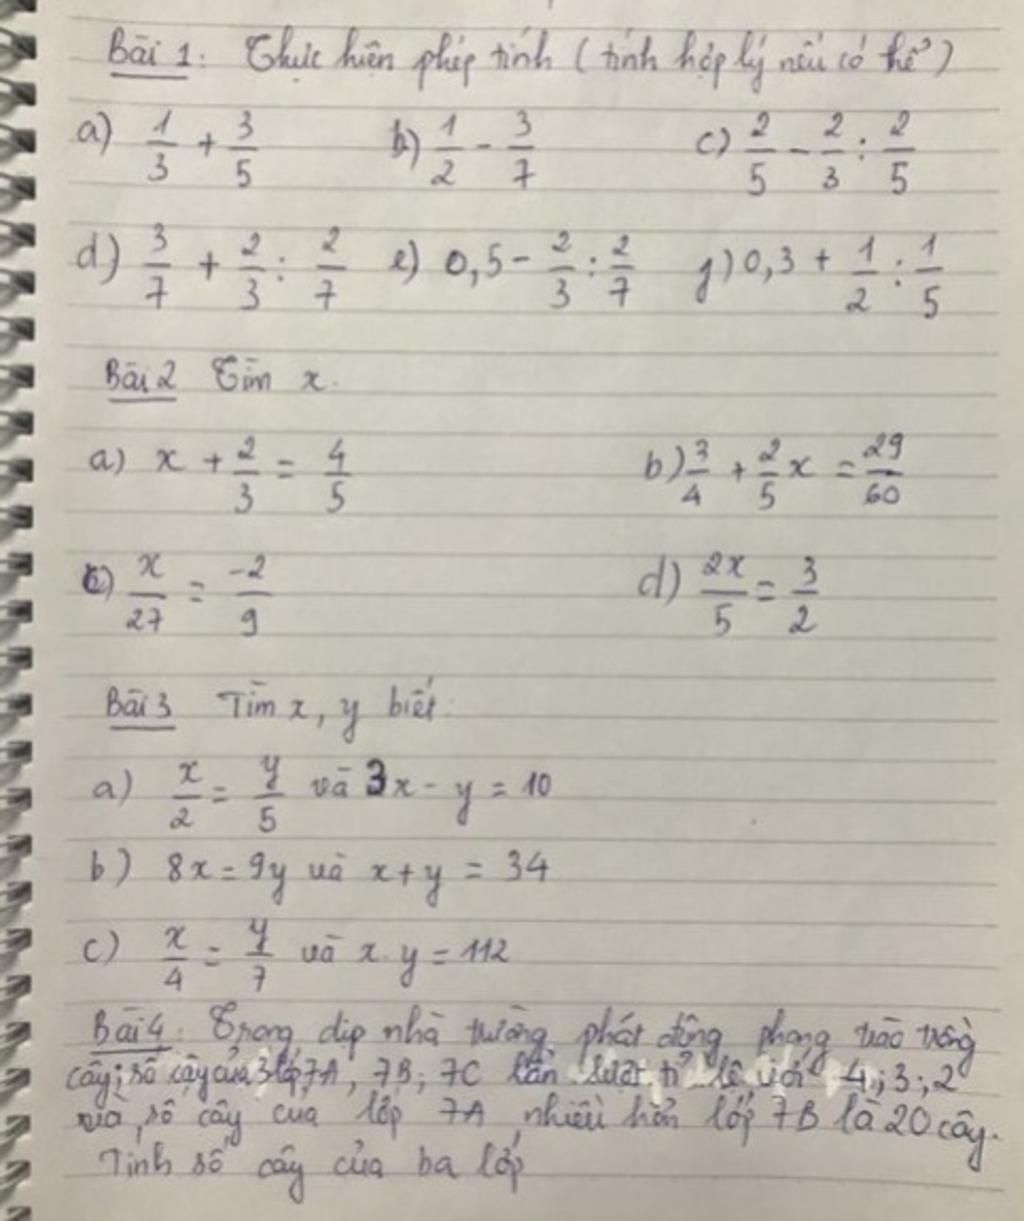 Bài 1: Thực hiện phép tính (tính hợp lý nếu có thể)
a) 1/3 + 3/5 b) 1/2 - 3/7 c) 2/5 - 2/3 : 2/5
d) 3/7 + 2/3 : 2/7 e) 0,5 - 2/3 : 2/7 f) 0,3 + 1/2 : 1/5
Bài 2 Tìm x.
a) x + 2/3 = 4/5 b) 3/4 + 2/5 x = 29/60
c) x/27 = -2/9 d) 2x/5 = 3/2
Bài 3 Tìm x, y biết:
a) x/2 = y/5 và 3x - y = 10
b) 8x = 9y và x + y = 34
c) x/4 = y/7 và x.y = 112
Bài 4: Trong dịp nhà trường phát động phong trào trồng
cây; số cây của 3 lớp 7A, 7B; 7C lần lượt tỉ lệ với 4; 3; 2
và số cây của lớp 7A nhiều hơn lớp 7B là 20 cây.
Tính số cây của ba lớp